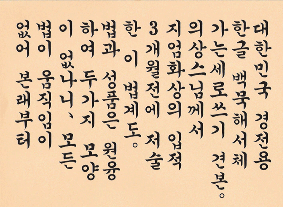 대한민국 경전용
한글 백묵해서체
가는세로쓰기 견본。
의상스님께서
지엄화상의 입적
3개월전에 저술
한 이 법계도。
법과 성품은 원융
하여 두가지 모양
이 없나니、모든
법이 움직임이
없어 본래부터